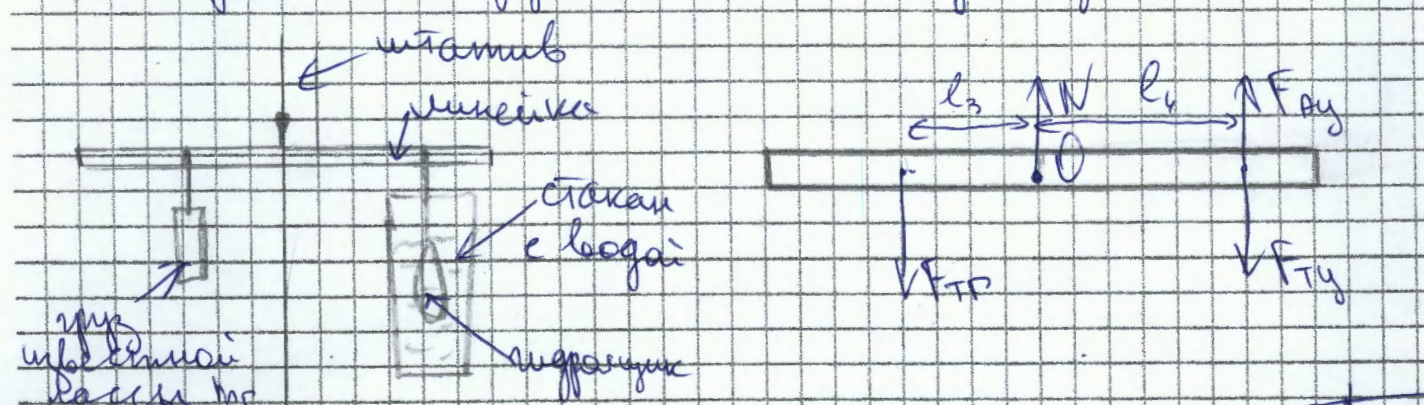 штатив
линейка
стакан
с водой
груз
известной
массы mг
гидроящик
l₃
N
l₄
F_Ay
O
F_Tг
F_Ty